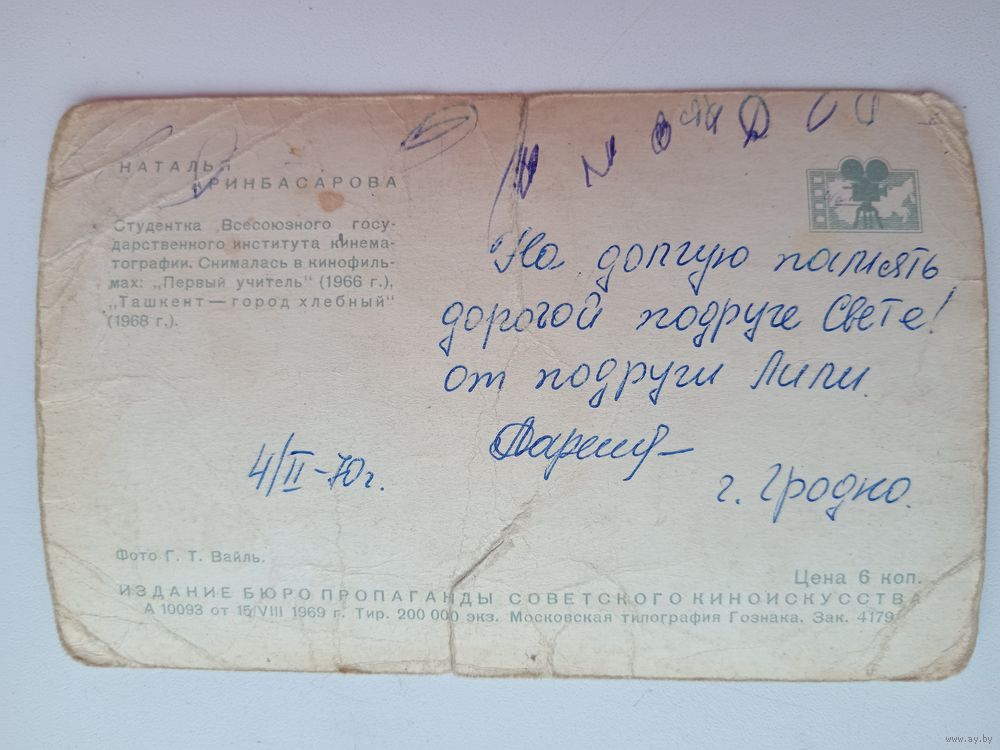 НАТАЛЬЯ
АРИНБАСАРОВА
Студентка Всесоюзного госу-
дарственного института кинема-
тографии. Снималась в кинофиль-
мах: „Первый учитель" (1966 г.),
„Ташкент — город хлебный"
(1968 г.).
На долгую память
дорогой подруге Свете!
от подруги Лили.
г. Гродно.
4/II-70г.
Фото Г. Т. Вайль.
Цена 6 коп.
ИЗДАНИЕ БЮРО ПРОПАГАНДЫ СОВЕТСКОГО КИНОИСКУССТВА
А 10093 от 15/VIII 1969 г. Тир. 200 000 экз. Московская типография Гознака. Зак. 4179
www.ay.by